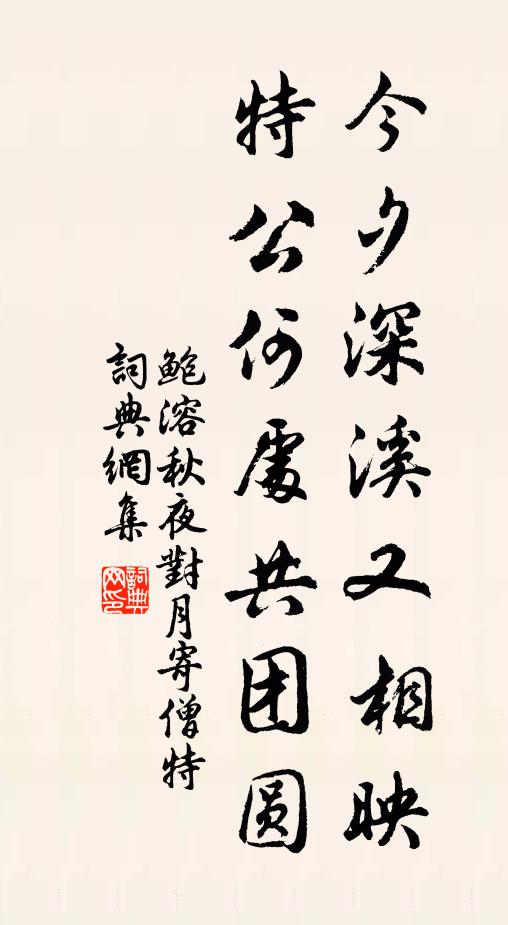 今夕深溪又相映
特公何處共团圆
鲍溶秋夜對月寄僧特
詞典網集
詞典网印